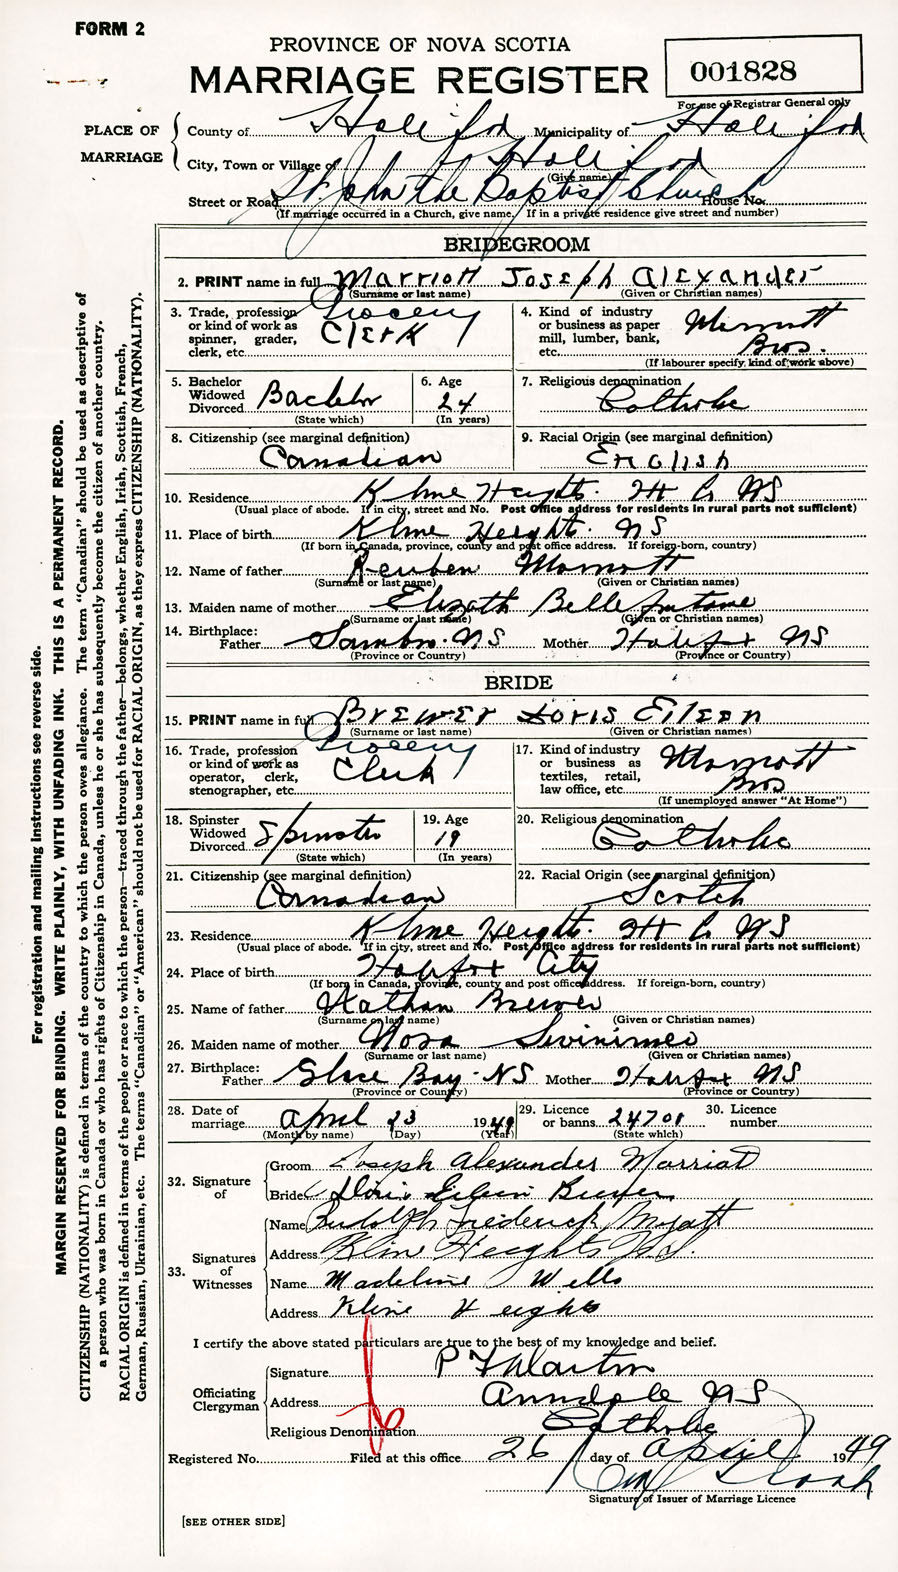 FORM 2
PROVINCE OF NOVA SCOTIA
MARRIAGE REGISTER
001828
For use of Registrar General only
PLACE OF MARRIAGE
County of Halifax Municipality of Halifax
City, Town or Village of Halifax
(Give name)
Street or Road St. John the Baptist Church House No.
(If marriage occurred in a Church, give name. If in a private residence give street and number)
BRIDEGROOM
2. PRINT name in full Marriott Joseph Alexander
(Surname or last name) (Given or Christian names)
3. Trade, profession or kind of work as spinner, grader, clerk, etc. Grocery Clerk
4. Kind of industry or business as paper mill, lumber, bank, etc. Marriott Bros.
(If labourer specify kind of work above)
5. Bachelor Widowed Divorced Bachelor
(State which)
6. Age 24
(In years)
7. Religious denomination Catholic
8. Citizenship (see marginal definition) Canadian
9. Racial Origin (see marginal definition) English
10. Residence Kline Heights. Hx Co NS
(Usual place of abode. If in city, street and No. Post Office address for residents in rural parts not sufficient)
11. Place of birth Kline Heights. NS
(If born in Canada, province, county and post office address. If foreign-born, country)
12. Name of father Reuben Marriott
(Surname or last name) (Given or Christian names)
13. Maiden name of mother Belle fontaine
(Surname or last name) (Given or Christian names)
14. Birthplace: Father Sambro. NS Mother Halifax NS
(Province or Country) (Province or Country)
BRIDE
15. PRINT name in full Brewer Doris Eileen
(Surname or last name) (Given or Christian names)
16. Trade, profession or kind of work as operator, clerk, stenographer, etc. Grocery Clerk
17. Kind of industry or business as textiles, retail, law office, etc. Marriott Bros
(If unemployed answer "At Home")
18. Spinster Widowed Divorced Spinster
(State which)
19. Age 19
(In years)
20. Religious denomination Catholic
21. Citizenship (see marginal definition) Canadian
22. Racial Origin (see marginal definition) Scotch
23. Residence Kline Heights. Hx Co NS
(Usual place of abode. If in city, street and No. Post Office address for residents in rural parts not sufficient)
24. Place of birth Halifax City
(If born in Canada, province, county and post office address. If foreign-born, country)
25. Name of father Nathan Brewer
(Surname or last name) (Given or Christian names)
26. Maiden name of mother Nora
(Surname or last name) (Given or Christian names)
27. Birthplace: Father Glace Bay. NS Mother Halifax NS
(Province or Country) (Province or Country)
28. Date of marriage April 23 1949
(Month by name) (Day) (Year)
29. Licence or banns 24701
(State which)
30. Licence number
32. Signature of
Groom Joseph Alexander Marriott
Bride Doris Eileen Brewer
33. Signatures of Witnesses
Name Rudolph Frederick Myatt
Address Kline Heights N.S.
Name Madeline Wells
Address Kline Heights
I certify the above stated particulars are true to the best of my knowledge and belief.
Officiating Clergyman
Signature
Address Armdale NS
Religious Denomination Catholic
Registered No. Filed at this office 26 day of April 1949
Signature of Issuer of Marriage Licence
[SEE OTHER SIDE]
For registration and mailing instructions see reverse side.
MARGIN RESERVED FOR BINDING. WRITE PLAINLY, WITH UNFADING INK. THIS IS A PERMANENT RECORD.
CITIZENSHIP (NATIONALITY) is defined in terms of the country to which the person owes allegiance. The term "Canadian" should be used as descriptive of
a person who was born in Canada or who has rights of Citizenship in Canada, unless he or she has subsequently become the citizen of another country.
RACIAL ORIGIN is defined in terms of the people or race to which the person—traced through the father—belongs, whether English, Irish, Scottish, French,
German, Russian, Ukrainian, etc. The terms "Canadian" or "American" should not be used for RACIAL ORIGIN, as they express CITIZENSHIP (NATIONALITY).